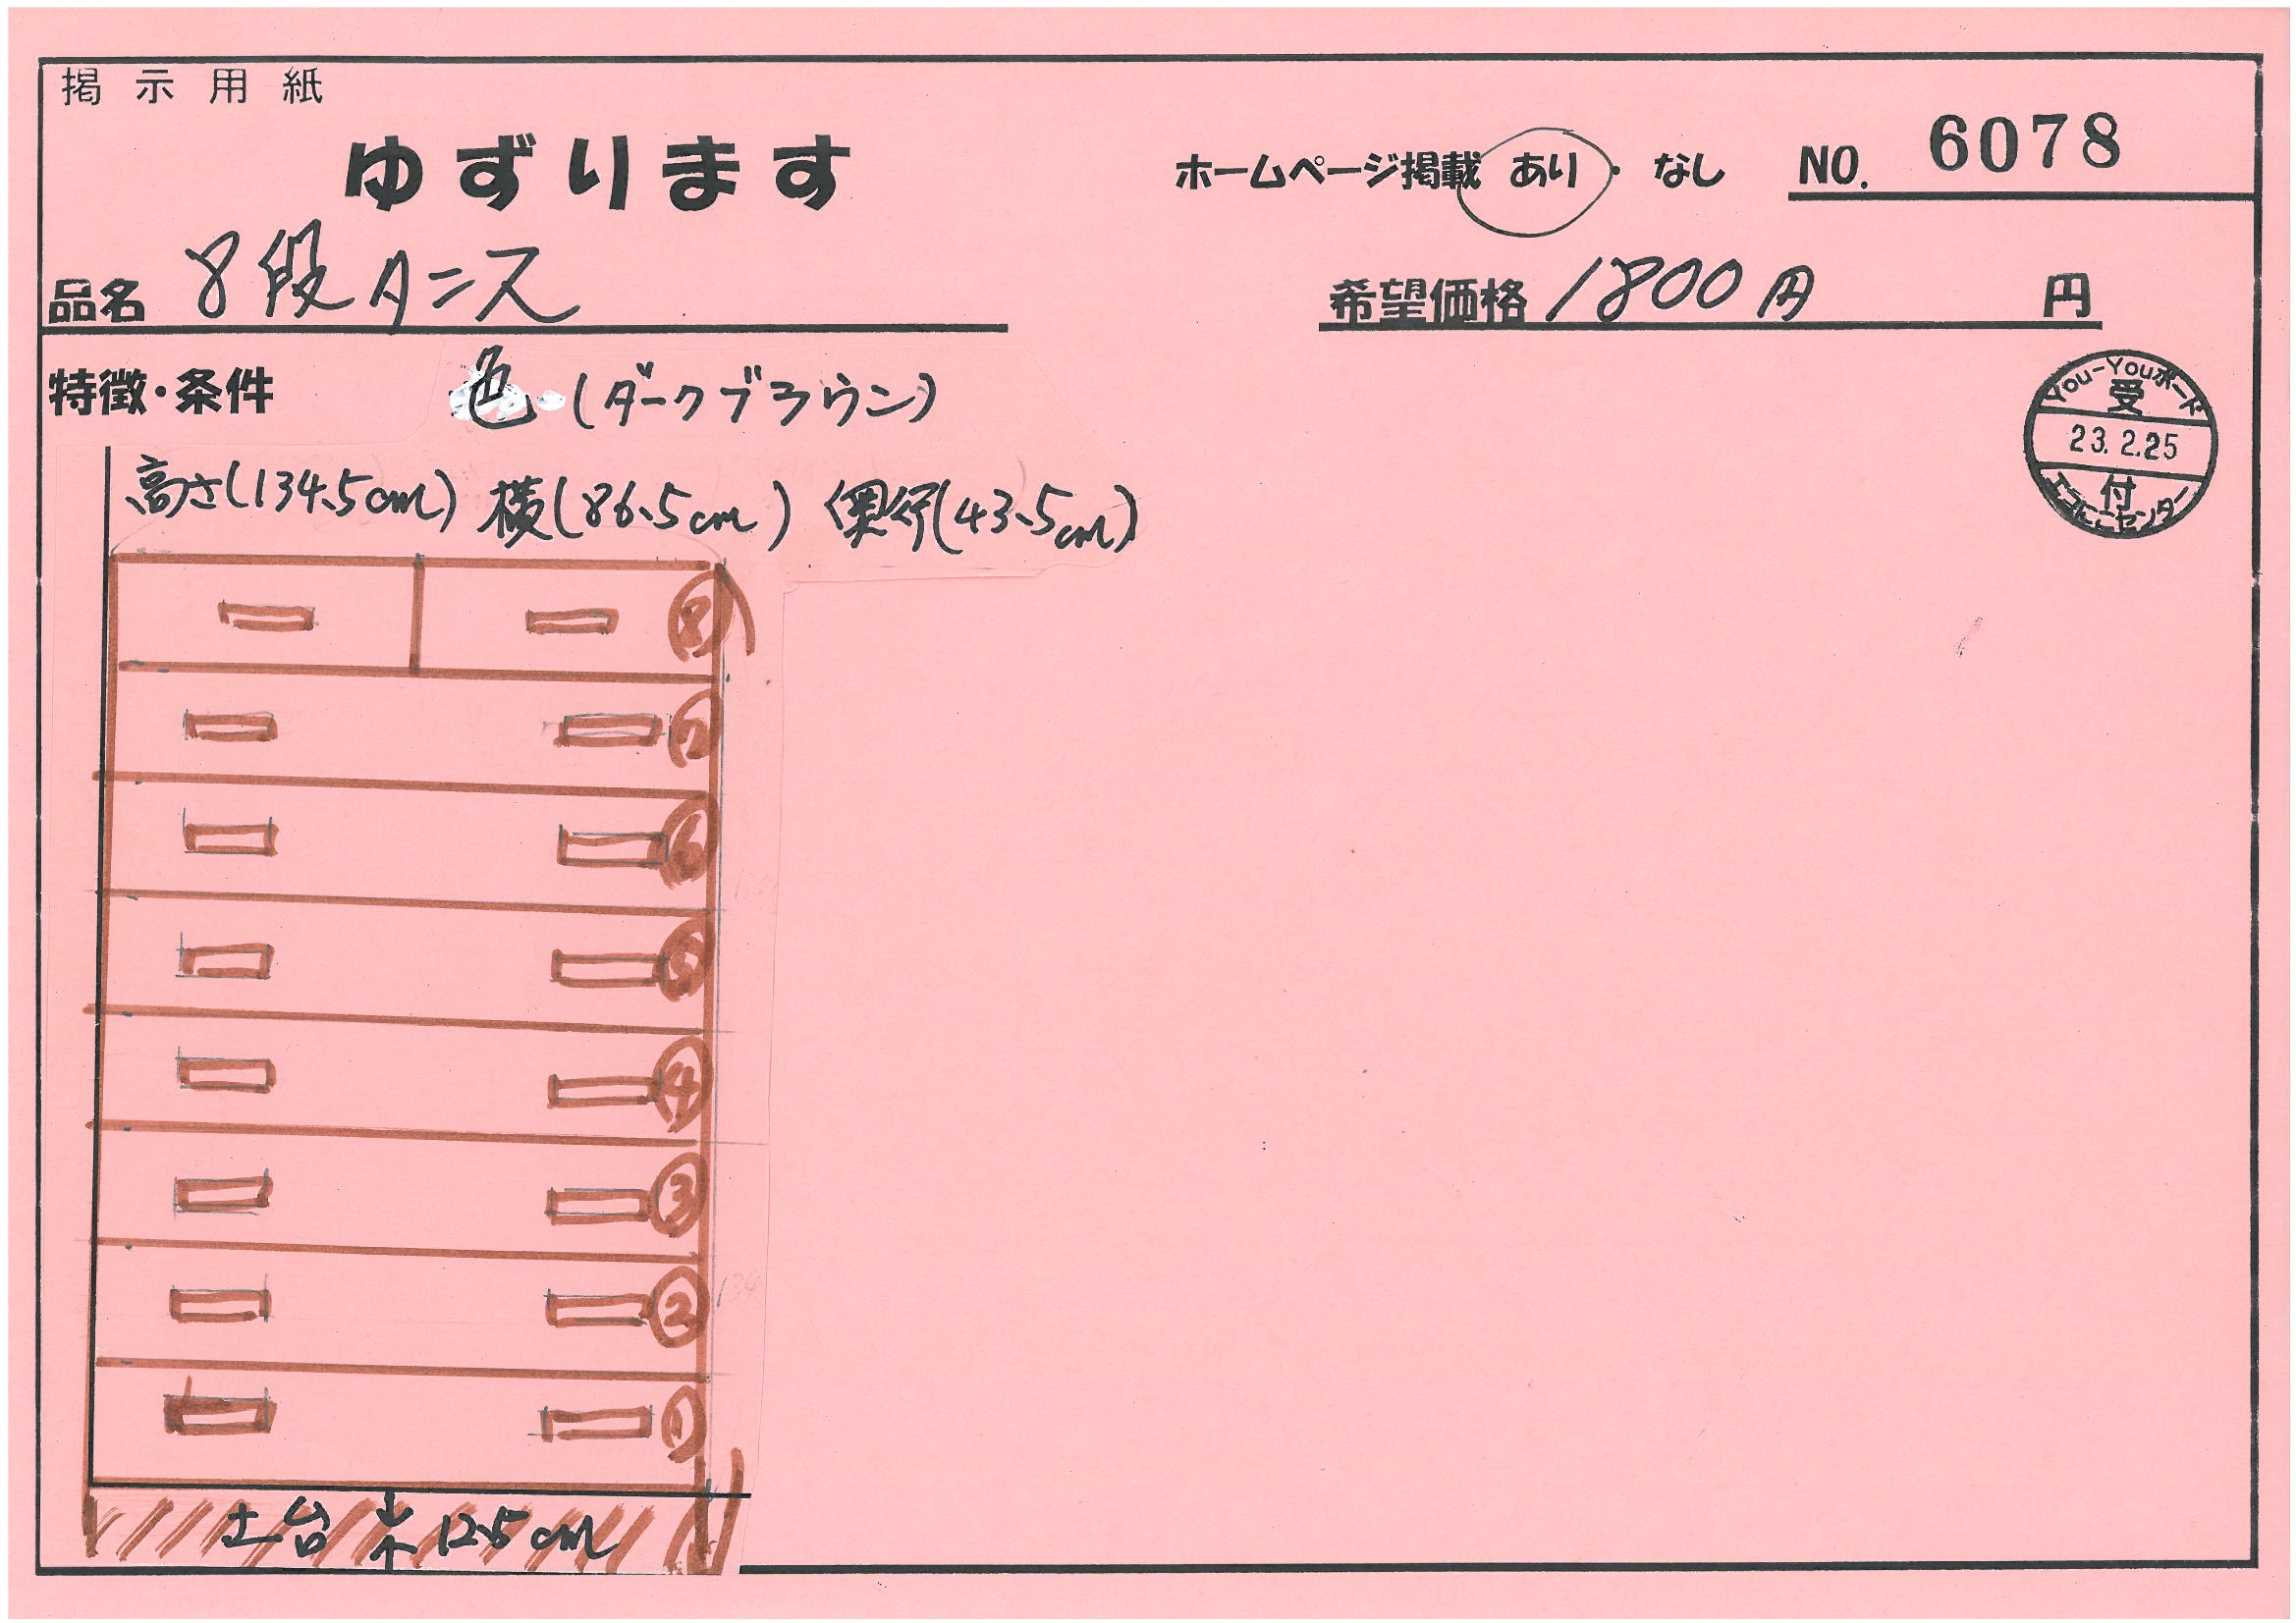 掲示用紙
ゆずります
ホームページ掲載 あり ・ なし NO. 6078
品名 8段タンス
希望価格 1800円 円
特徴・条件 色(ダークブラウン)
高さ(134.5cm) 横(86.5cm) 奥行(43.5cm)
You-Youボード
受
23.2.25
付
エコにこセンター
⑧
⑦
⑥
⑤
④
③
②
①
土台 12.5cm